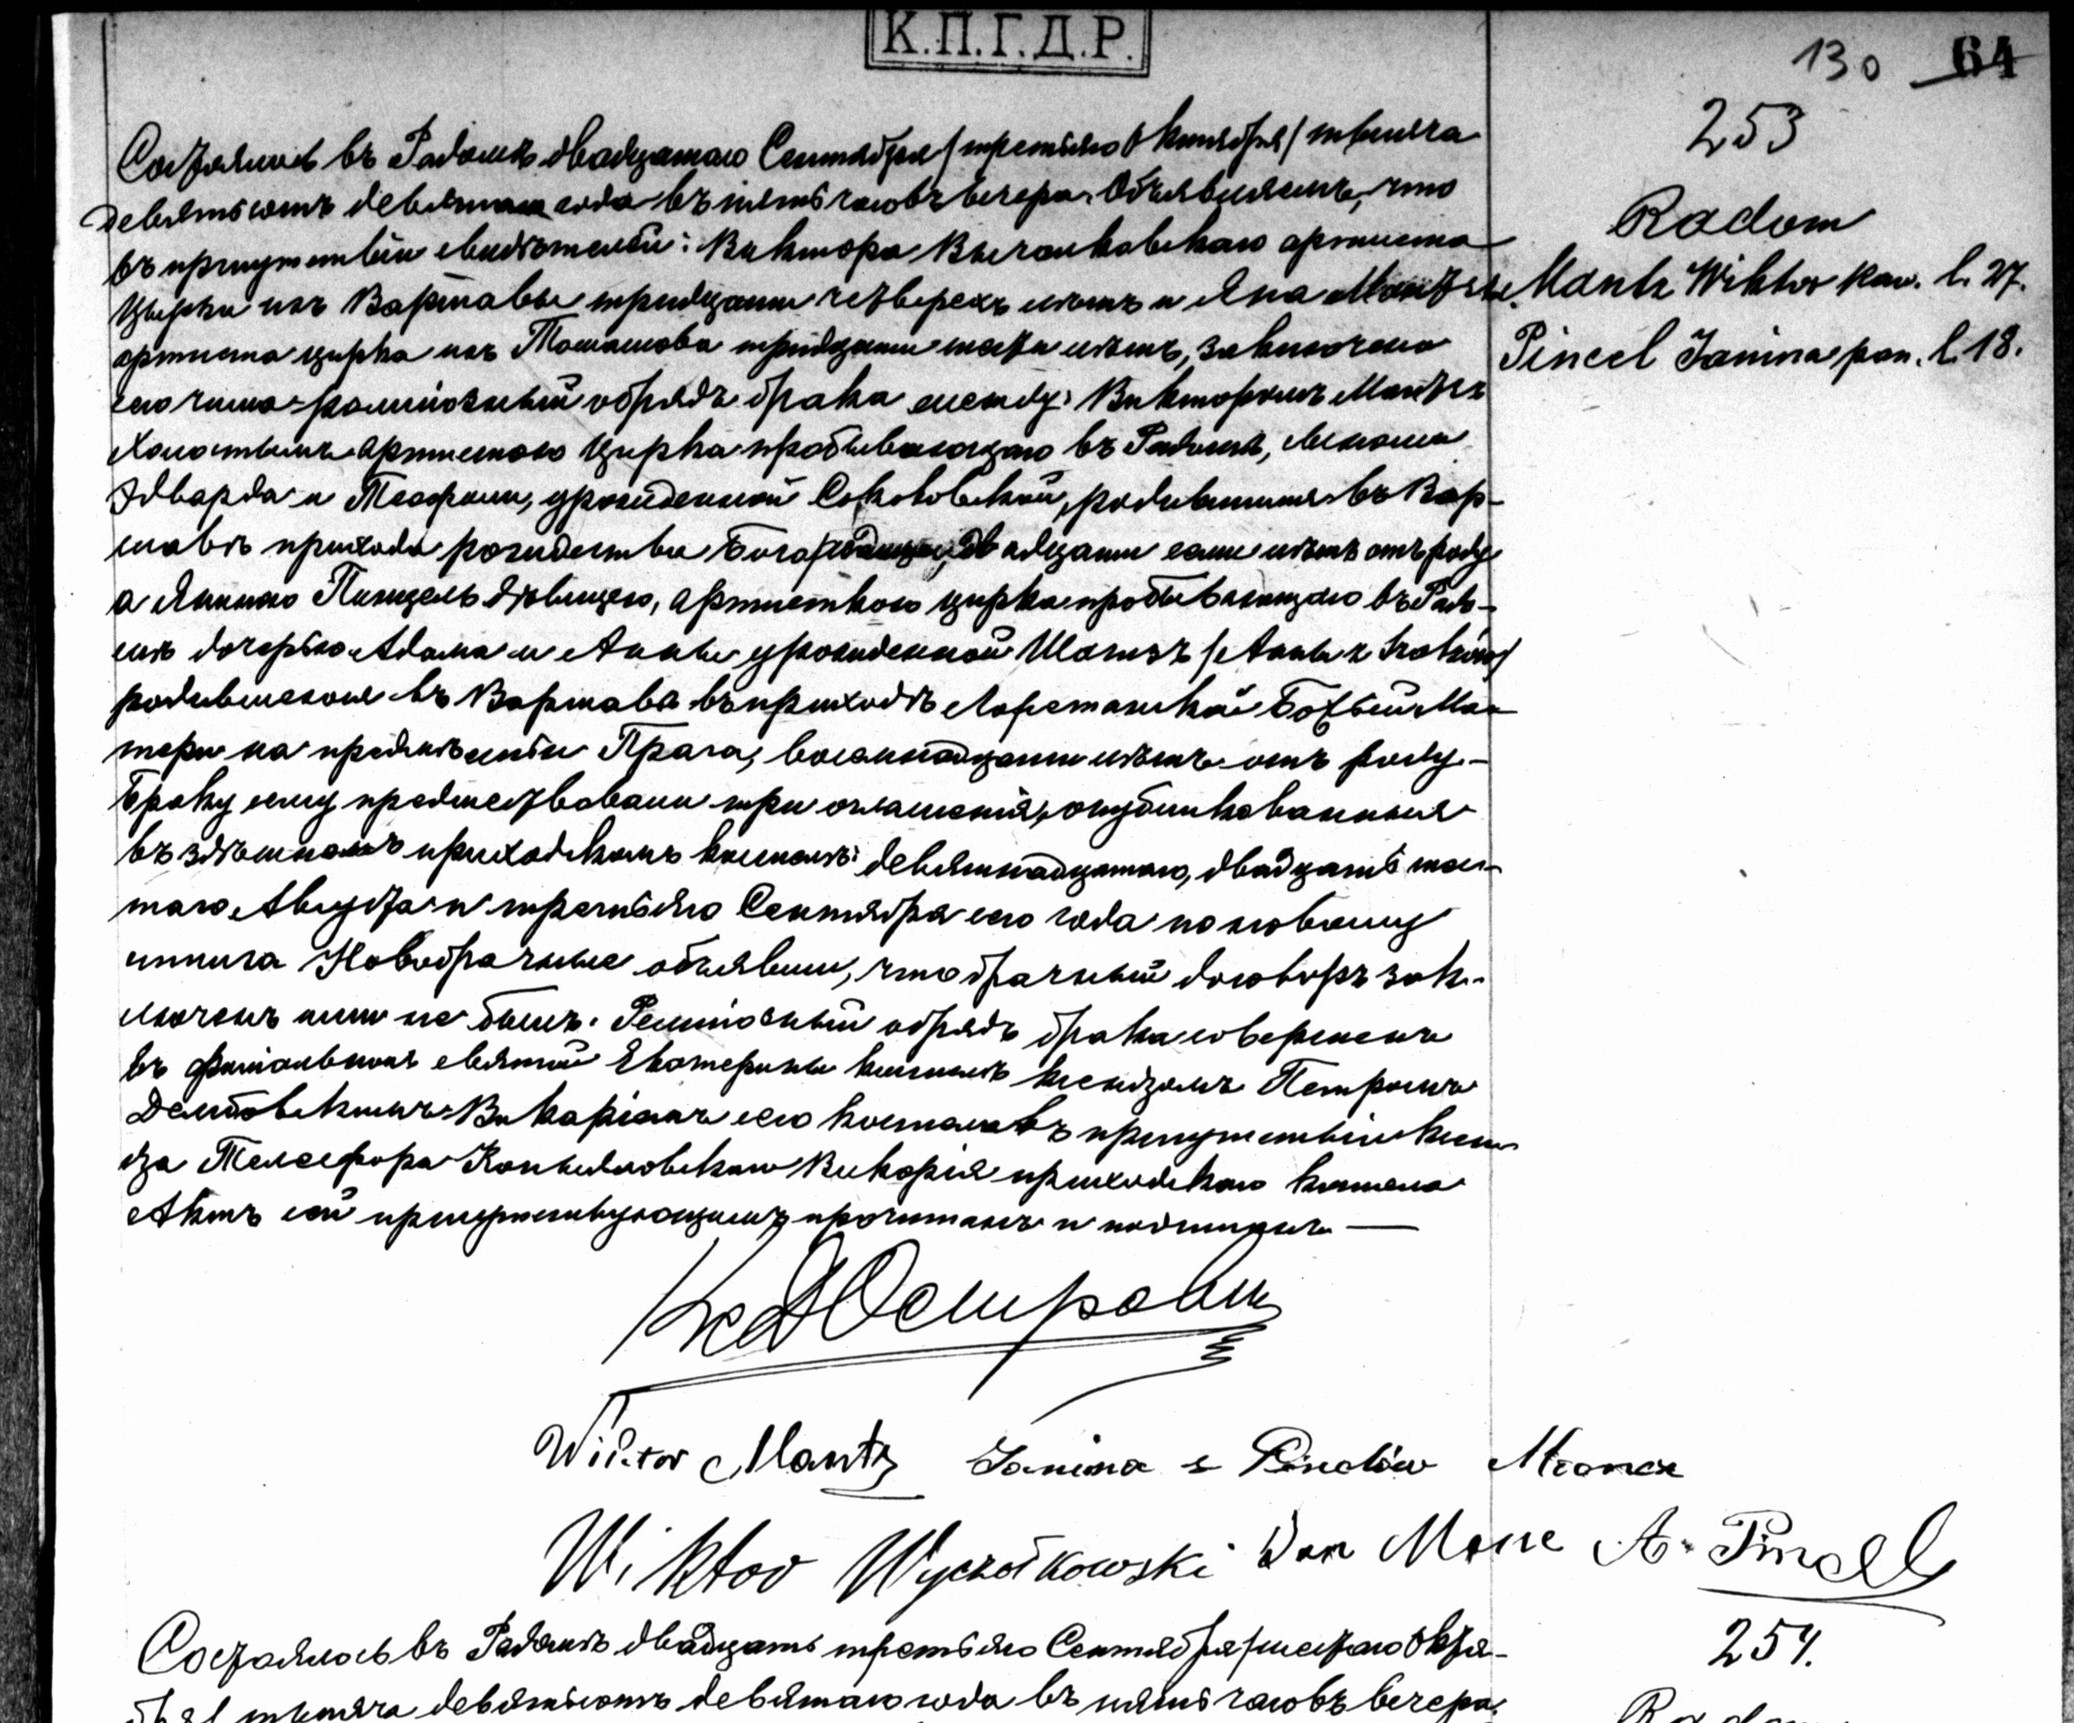 К.П.Г.Д.Р.
130 64
253
Radom
Mantz Wiktor kaw. l. 27.
Pincel Janina pan. l. 18.
Состоялось въ Радомѣ двадцатаго Сентября /третьяго Октября/ тысяча
девятьсотъ девятаго года въ пять часовъ вечера. Объявляемъ, что
въ присутствіи свидѣтелей: Виктора Вычолковскаго артиста
Цырка изъ Варшавы тридцати четверехъ лѣтъ и Яна
артиста цирка изъ Томашова тридцати лѣтъ, заключено
сего числа религіозный обрядъ брака между: Викторомъ Мантзъ
холостымъ артистомъ Цирка пробывающаго въ Радомѣ, сыномъ
Эдварда и Теофили, урожденной Соколовской, родившимся въ Вар-
шавѣ прихода рождества Богородицы, двадцати семи лѣтъ отъ роду
а Яниною Пинцель дѣвицею, артисткою цирка пробывающаго въ Радо-
мѣ дочерью Адама и Анны урожденной /Анны z
родившеюся въ Варшавѣ въ приходѣ Лоретанской Божьей Ма-
тери на предмѣстьи Прага, восемнадцати лѣтъ отъ роду.-
Браку сему предшествовали три оглашенія, опубликованныя
въ здѣшномъ приходскомъ костелѣ: девятнадцатаго, двадцать шес-
таго Августа и третьяго Сентября сего года по новому
штиля Новобрачные объявили, что брачный договоръ зак-
люченъ ими не былъ. Религіозный обрядъ брака совершенъ
въ филіальномъ святой Екатерины костелѣ ксендзомъ Петромъ
Викаріемъ сего костела въ присутствіи ксен-
дза Телесфора Викарія приходскаго костела
Актъ сей присутствующимъ прочитанъ и подписанъ —
Wiktor Mantz Janina z Pinclów
Wiktor Wyczółkowski Jan A. Pincel
254.
Состоялось въ Радомѣ двадцать третьяго Сентября /шестаго Октя-
бря/ тысяча девятьсотъ девятаго года въ пять часовъ вечера.
Radom